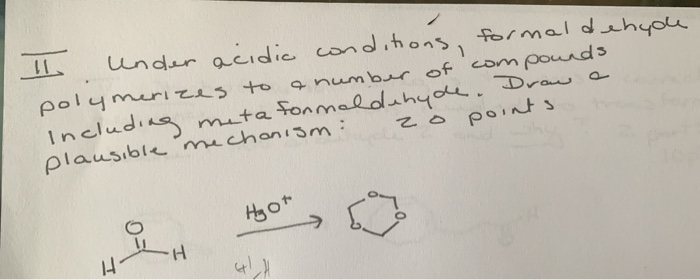 II. Under acidic conditions, formaldehyde
polymerizes to a number of compounds
Including metaformaldehyde. Draw a
plausible mechanism: 20 points
O
H H
H3O+
O
O
O